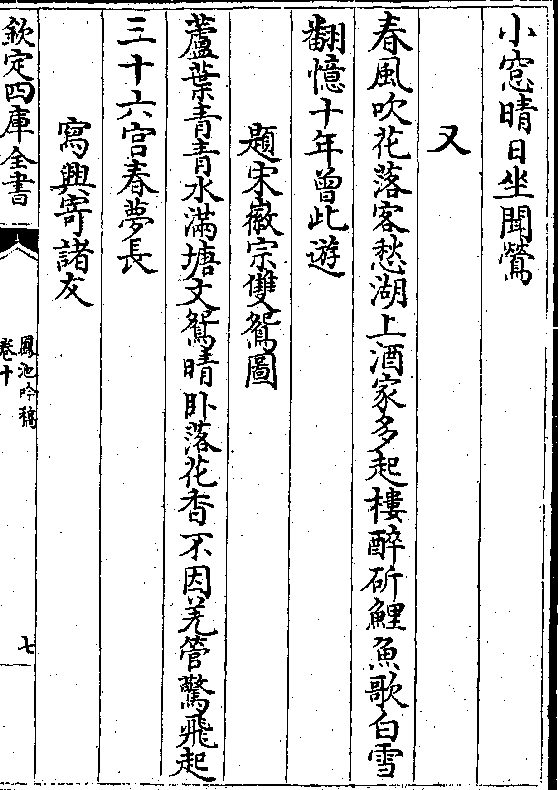 小窓晴日坐聞鶯
又
春風吹花落客愁湖上酒家多起樓醉斫鯉魚歌白雪
翻憶十年曾此遊
題宋徽宗雙鴛圖
蘆葉青青水滿塘文鴛晴卧落花香不因羌管驚飛起
三十六宫春夢長
寫興寄諸友
欽定四庫全書
鳳池吟稿
卷十
七